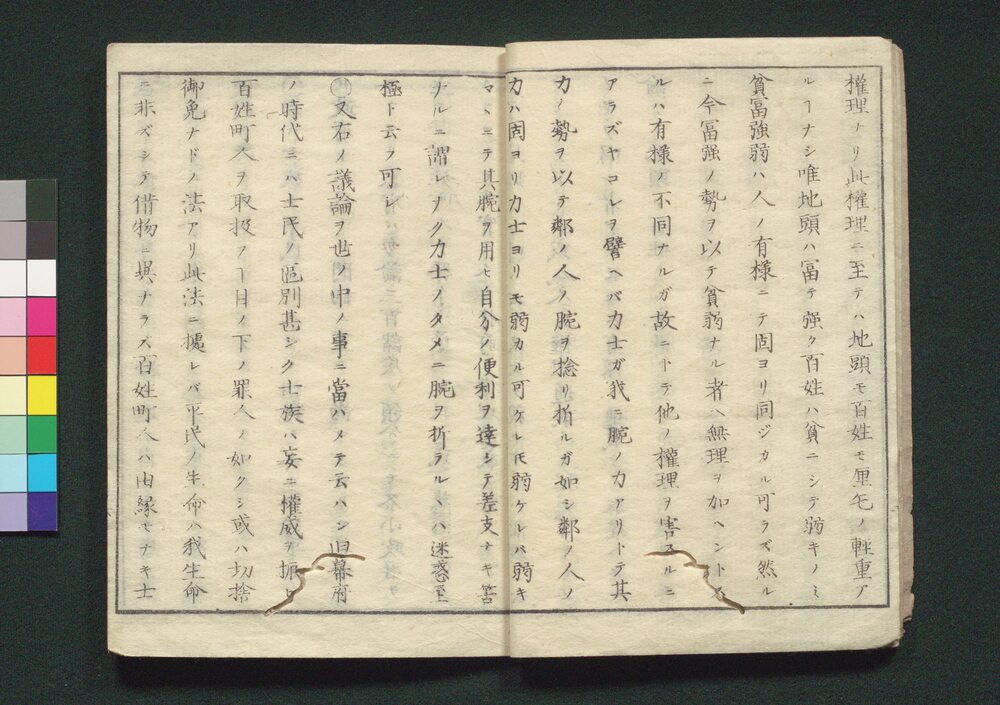 權理ナリ此權理ニ至テハ地頭モ百姓モ厘毛ノ輕重ア
ルヿナシ唯地頭ハ冨テ强ク百姓ハ貧ニシテ弱キノミ
貧冨強弱ハ人ノ有樣ニテ固ヨリ同ジカル可ラズ然ル
ニ今冨强ノ勢ヲ以テ貧弱ナル者ヘ無理ヲ加ヘントス
ルハ有樣ノ不同ナルガ故ニトテ他ノ權理ヲ害スルニ
アラズヤコレヲ譬ヘバ力士ガ我ニ腕ノ力アリトテ其
力ノ勢ヲ以テ鄰ノ人ノ腕ヲ捻リ折ルガ如シ鄰ノ人ノ
力ハ固ヨリ力士ヨリモ弱カル可ケレ𪜈弱ケレバ弱キ
マヽニテ其腕ヲ用ヒ自分ノ便利ヲ達シテ差支ナキ筈
ナルニ謂レナク力士ノタメニ腕ヲ折ラルヽハ迷惑至
極ト云フ可シ
又右ノ議論ヲ世ノ中ノ事ニ當ハメテ云ハン旧幕府
ノ時代ニハ士民ノ區別甚シク士族ハ妄ニ權威ヲ振ヒ
百姓町人ヲ取扱フヿ目ノ下ノ罪人ノ如クシ或ハ切捨
御免ナドノ法アリ此法ニ據レバ平民ノ生命ハ我生命
ニ非ズシテ借物ニ異ナラズ百姓町人ハ由緣モナキ士